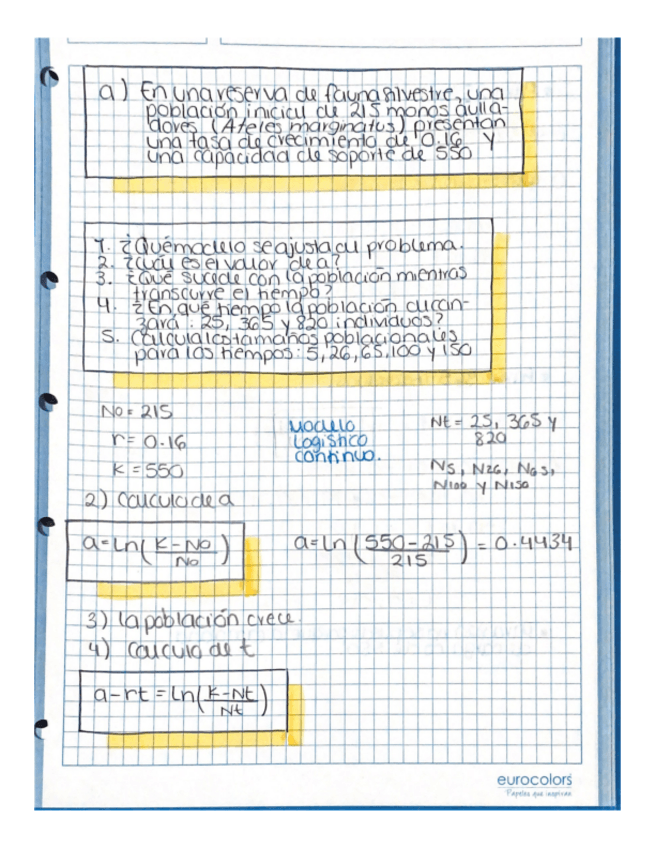 a) En una reserva de fauna silvestre, una
población inicial de 215 monos aulla-
dores (Ateles marginatus) presentan
una tasa de crecimiento de 0.16 y
una capacidad de soporte de 550
1. ¿Qué modelo se ajusta al problema.
2. ¿Cuál es el valor de a?
3. ¿Qué sucede con la población mientras
transcurre el tiempo?
4. ¿En qué tiempo la población alcan-
zará : 25, 365 y 820 individuos?
5. Calcula los tamaños poblacionales
para los tiempos: 5, 26, 65, 100 y 150
No = 215
r = 0.16
K = 550
Modelo
Logístico
continuo.
Nt = 25, 365 y
820
N5, N26, N65,
N100 y N150
2) Calculo de a
a = Ln(K-No/No)
a = Ln(550-215/215) = 0.4434
3) La población crece.
4) Calculo de t
a-rt = Ln(K-Nt/Nt)
eurocolors
Papeles que inspiran